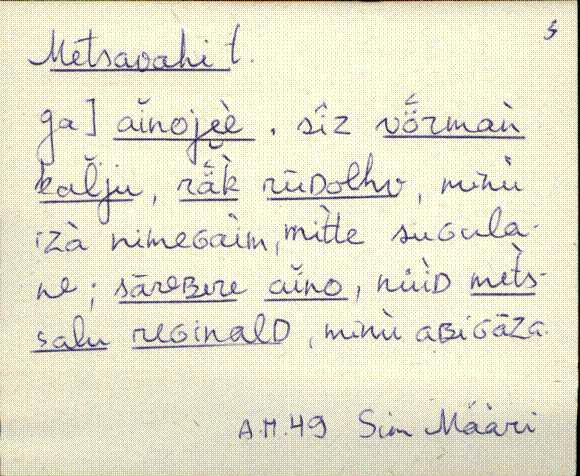 5
Metsavahi t.
ga] aĭnojeè, sîz vö̆rmaǹ
kal̆ju, rä̆k rūᴅolhv, minù
izà nimeɢaìm, mìtte suɢula-
ne; sāreʙere aĭno, nǜiᴅ mèts-
salu reɢinalᴅ, minù aʙiɢāza.
A.M.49 Sim Määri